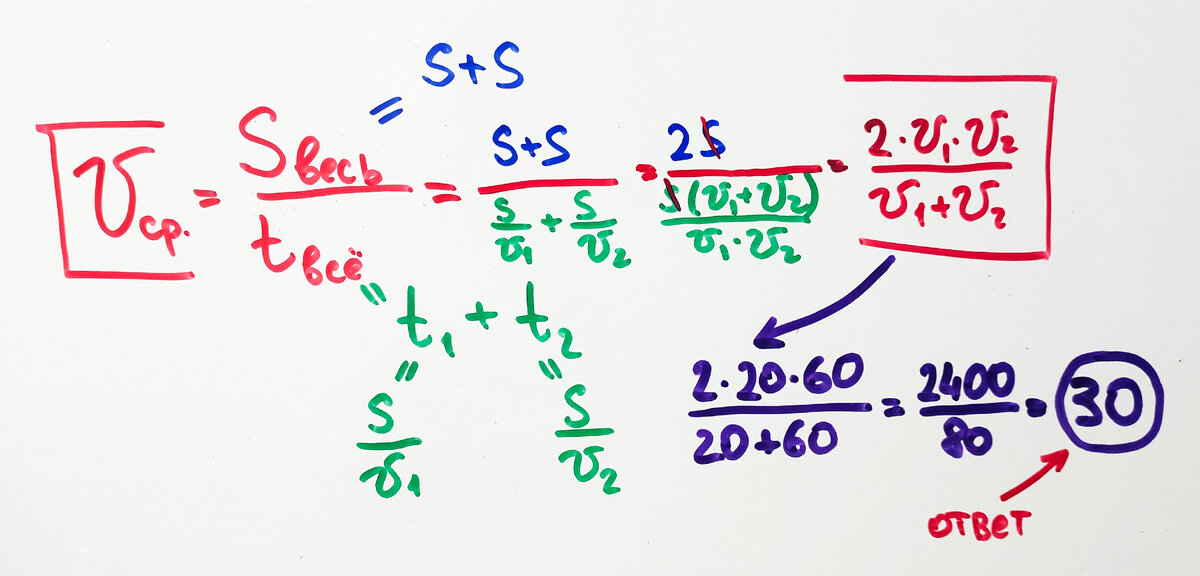 S+S
=
v ср. = S весь / t всё = (S+S) / (S/v₁ + S/v₂) = 2S / (S(v₁+v₂) / v₁·v₂) = 2·v₁·v₂ / (v₁+v₂)
= t₁ + t₂
= =
S/v₁ S/v₂
2·20·60 / (20+60) = 2400/80 = 30
ответ